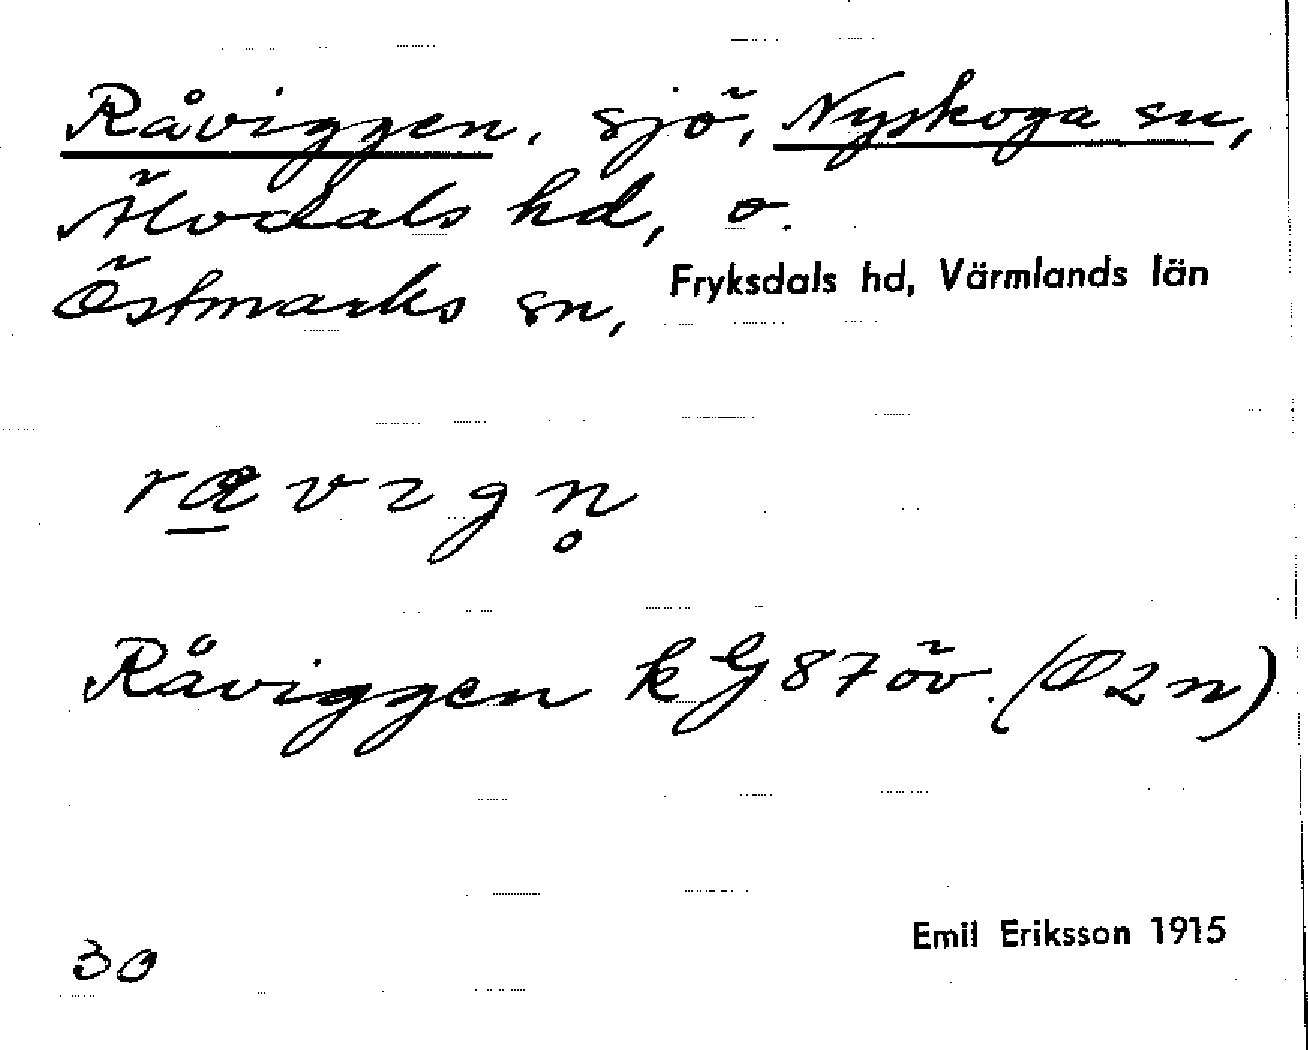 Råviggen, sjö, Nyskoga sn,
Älvdals hd, o.
Östmarks sn, Fryksdals hd, Värmlands län
Råviggen kG 87 öv. (O2n)
30
Emil Eriksson 1915